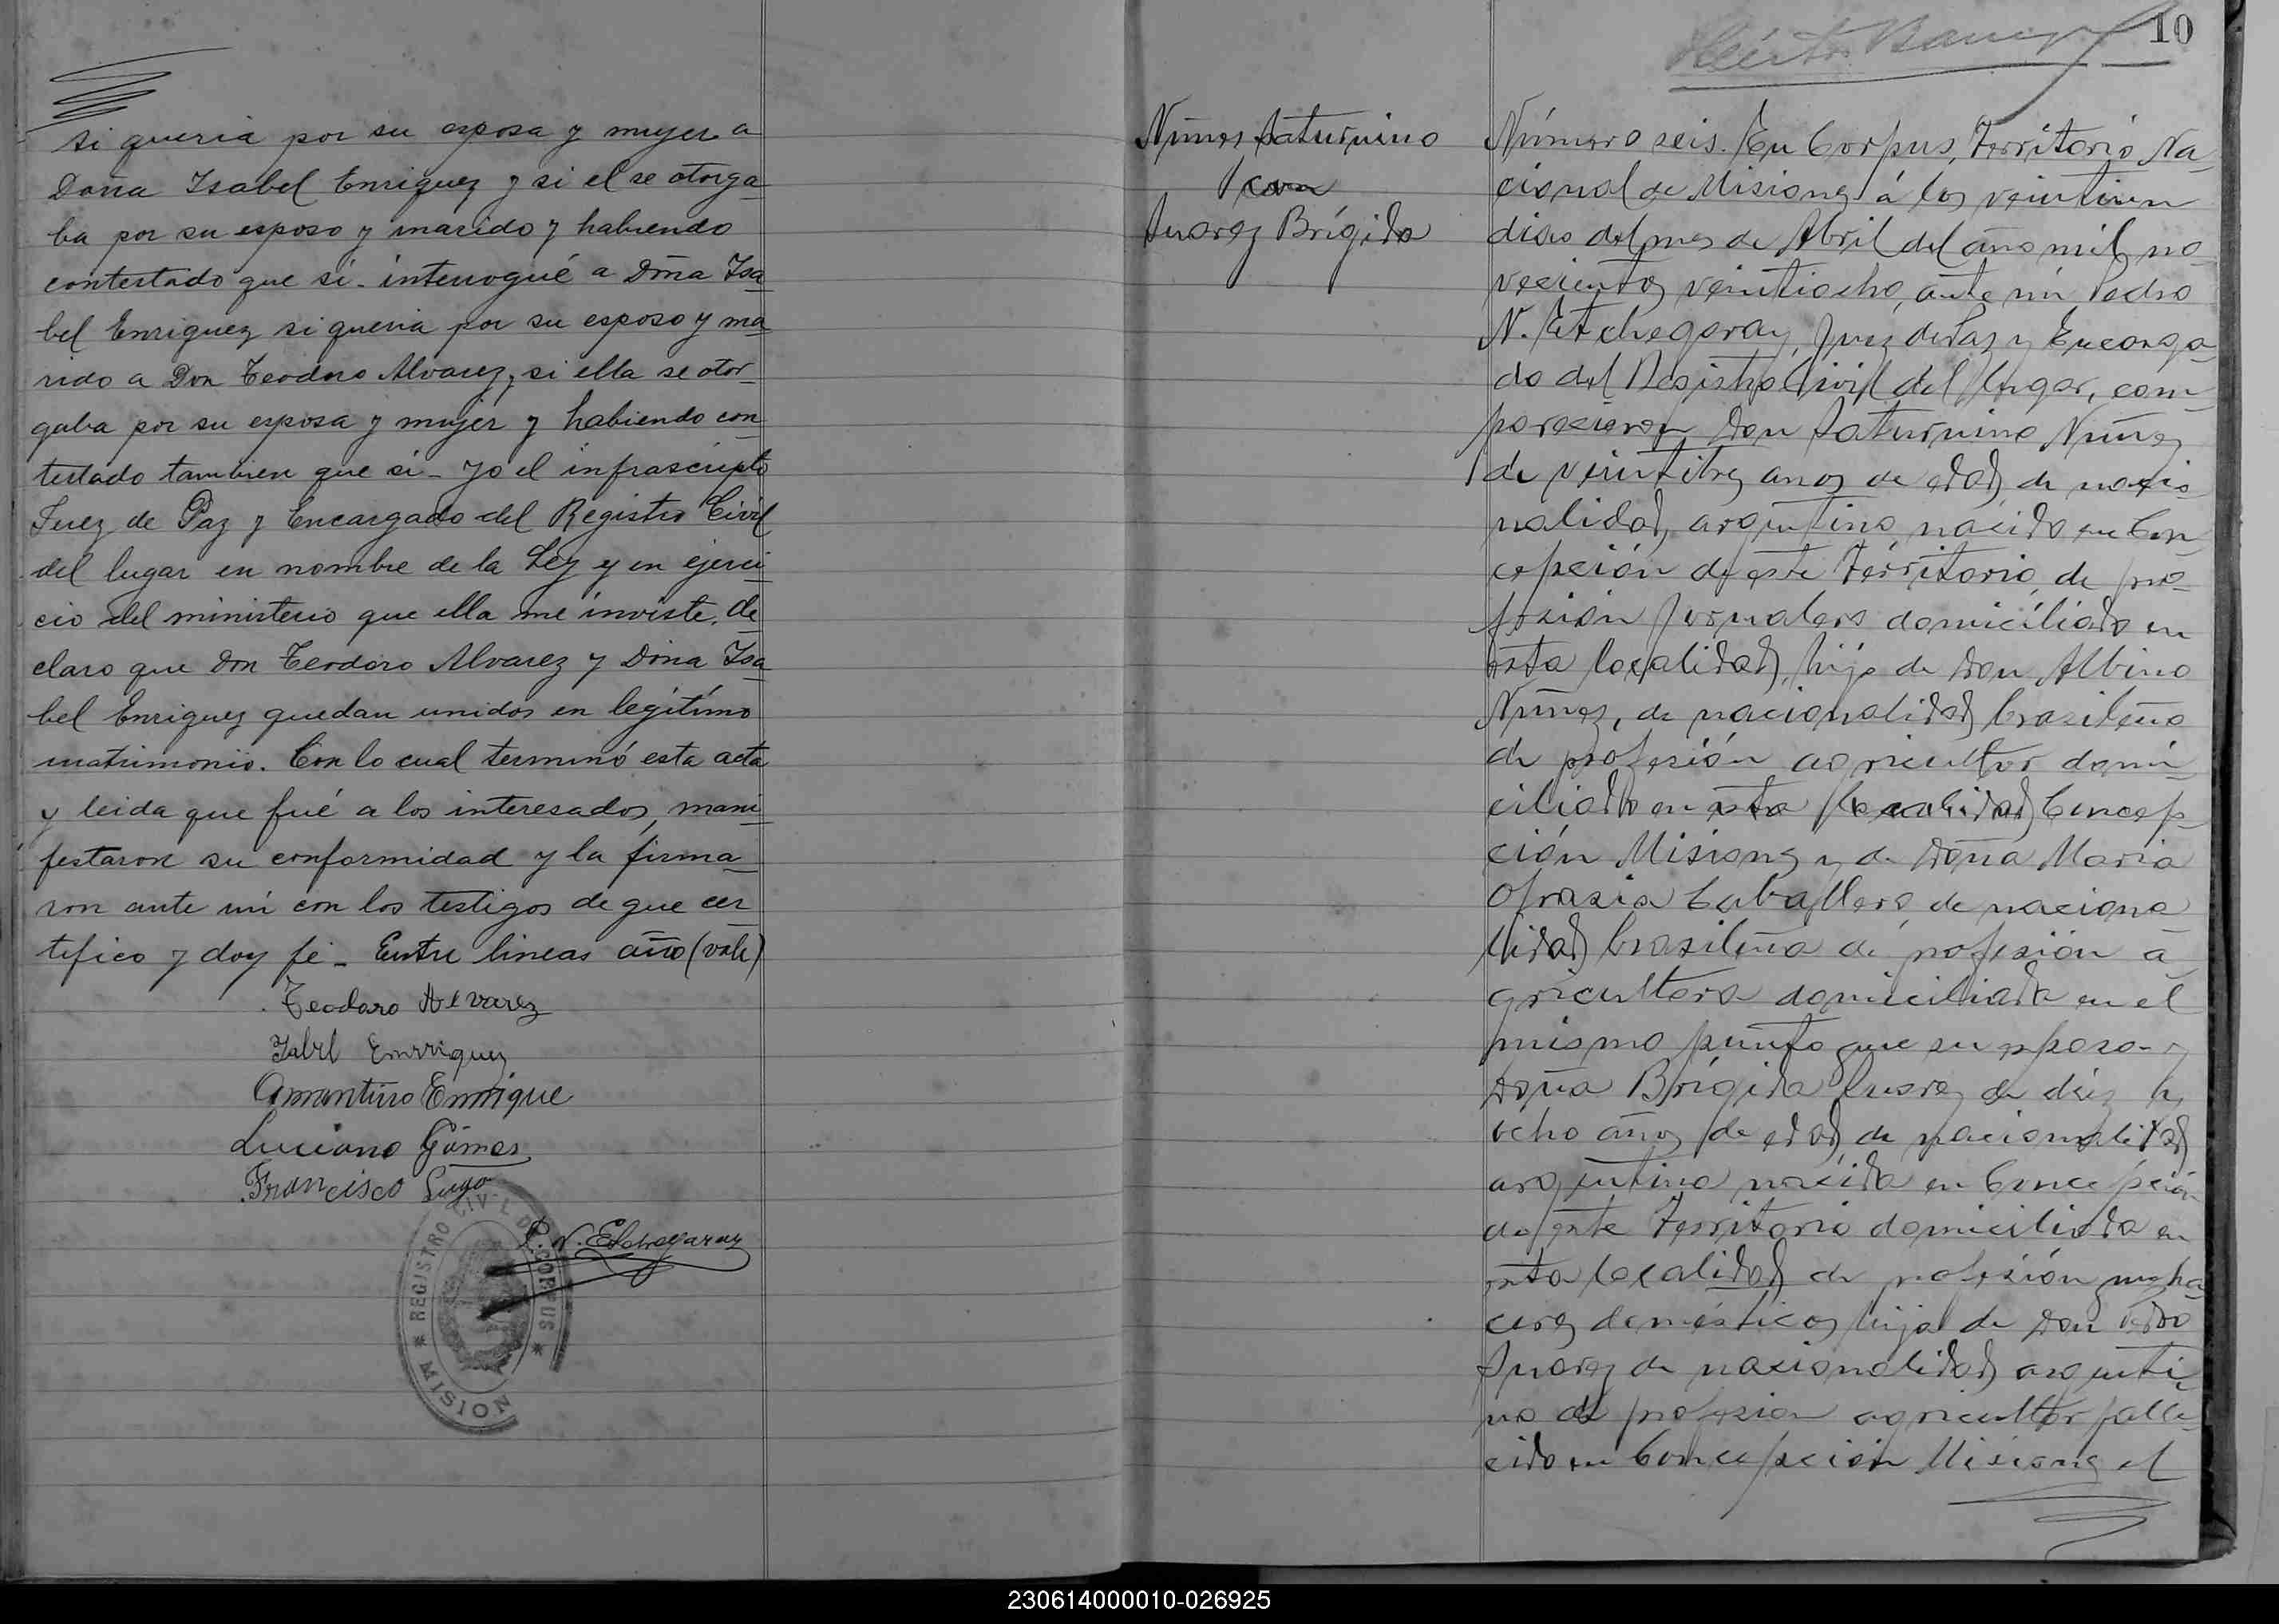 si queria por su esposa y mujer a
Doña Isabel Enriquez y si el se otorga-
ba por su esposo y marido y habiendo
contestado que si - interrogué a Dña Isa-
bel Enriquez si queria por su esposo y ma-
rido a Don Teodoro Alvarez, si ella se otor-
gaba por su esposa y mujer y habiendo con-
testado tambien que si - Yo el infrascripto
Juez de Paz y Encargado del Registro Civil
del lugar en nombre de la Ley y en ejerci-
cio del ministerio que ella me inviste, de-
claro que Don Teodoro Alvarez y Dña Isa-
bel Enriquez quedan unidos en legítimo
matrimonio. Con lo cual terminó esta acta
y leida que fué a los interesados, mani-
festaron su conformidad y la firma-
ron ante mi con los testigos de que cer-
tifico y doy fé - Entre lineas año (vale)
Teodoro Alvarez
Isabel Enrriquez
Amantino Enrrique
Luciano Gómes
Francisco Lugo
P. N. Etchegaray
REGISTRO CIVIL DE CORPUS
* MISIONES *
10
Héctor
Núnes Saturnino
con
Suarez Brígida
Número seis. En Corpus, Territorio Na-
cional de Misiones á los veintiun
dias del mes de Abril del año mil no-
vecientos veintiocho, ante mi Pedro
N. Etchegaray, Juez de Paz y Encarga-
do del Registro Civil del lugar, com-
parecieron Don Saturnino Núñes
de veintitres anos de edad, de nacio-
nalidad, argentino, nacido en Con-
cepción de este Territorio, de pro-
fesión Jornalero domiciliado en
esta localidad, hijo de Don Albino
Núñes, de nacionalidad brasileño
de profesión agricultor domi-
ciliado en esta localidad Concep-
ción Misiones y de Doña Maria
Ofrasia Caballero, de naciona-
lidad brasileña de profesión a-
gricultora domiciliada en el
mismo punto que su esposo - y
Doña Brígida Suarez de diez y
ocho años de edad, de nacionalidad
argentina nacida en Concepción
de este Territorio domiciliada en
esta localidad de profesión queha-
ceres domésticos hija de Don Pedro
Suárez de nacionalidad argenti-
no de profesion agricultor falle-
cido en Concepción Misiones el
230614000010-026925